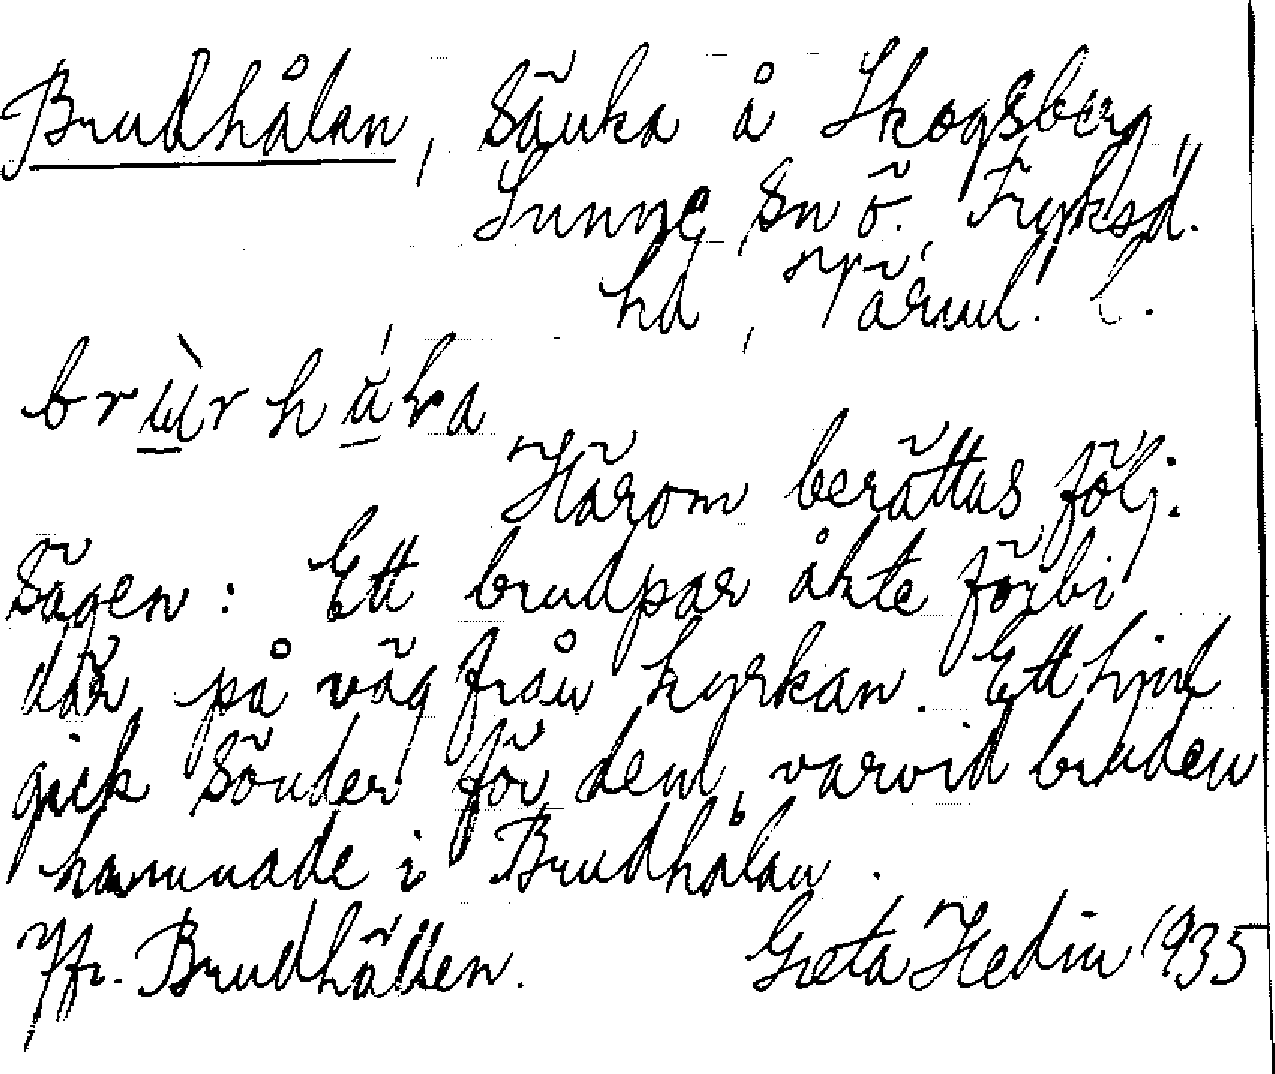 Brudhålan, sänka å Skogsberg,
Sunne sn ö. Fryksd.
hd, Värml. l.
brùrhǻɫa
Härom berättas följ.
sägen: Ett brudpar åkte förbi
där på väg från kyrkan. Ett hjul
gick sönder för dem, varvid bruden
hamnade i Brudhålan.
Jfr. Brudhällen. Greta Hedin 1935